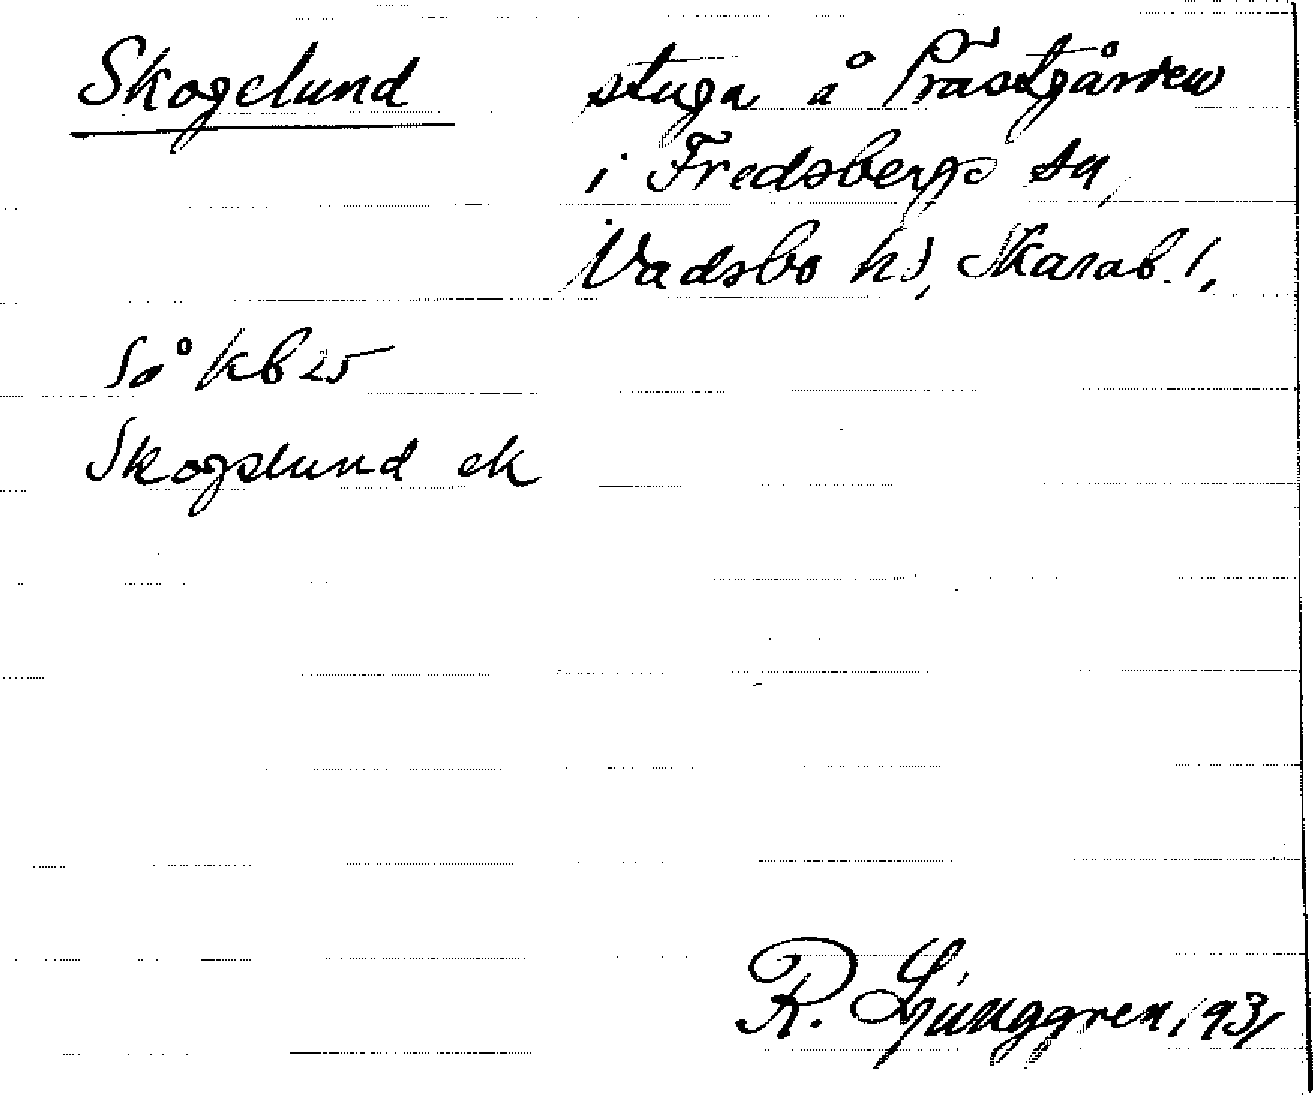 Skogslund stuga å Prästgården
i Fredsbergs sn,
Vadsbo hd, Skarab. l.
så Kb 25
Skogslund ek
R. Ljunggren, 1931